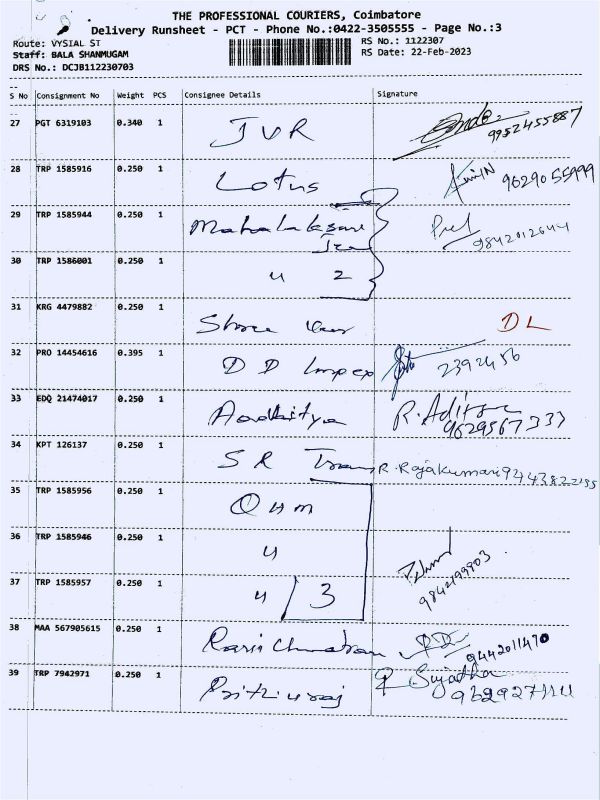 THE PROFESSIONAL COURIERS, Coimbatore
Delivery Runsheet - PCT - Phone No.:0422-3505555 - Page No.:3
Route: VYSIAL ST
RS No.: 1122307
Staff: BALA SHANMUGAM
RS Date: 22-Feb-2023
DRS No.: DCJB112230703
S No Consignment No Weight PCS Consignee Details Signature
27 PGT 6319103 0.340 1 JVR 9952455887
28 TRP 1585916 0.250 1 Lotus 9629055999
29 TRP 1585944 0.250 1 9842012644
30 TRP 1586001 0.250 1 " 2
31 KRG 4479882 0.250 1 DL
32 PRO 14454616 0.395 1 DD Impex 2392456
33 EDQ 21474017 0.250 1 Aadhitya 9629567333
34 KPT 126137 0.250 1 SR Trans R. Rajakumari
35 TRP 1585956 0.250 1
36 TRP 1585946 0.250 1 "
37 TRP 1585957 0.250 1 " 3 9842199803
38 MAA 567905615 0.250 1
39 TRP 7942971 0.250 1 Prithiviraj R. Sujatha